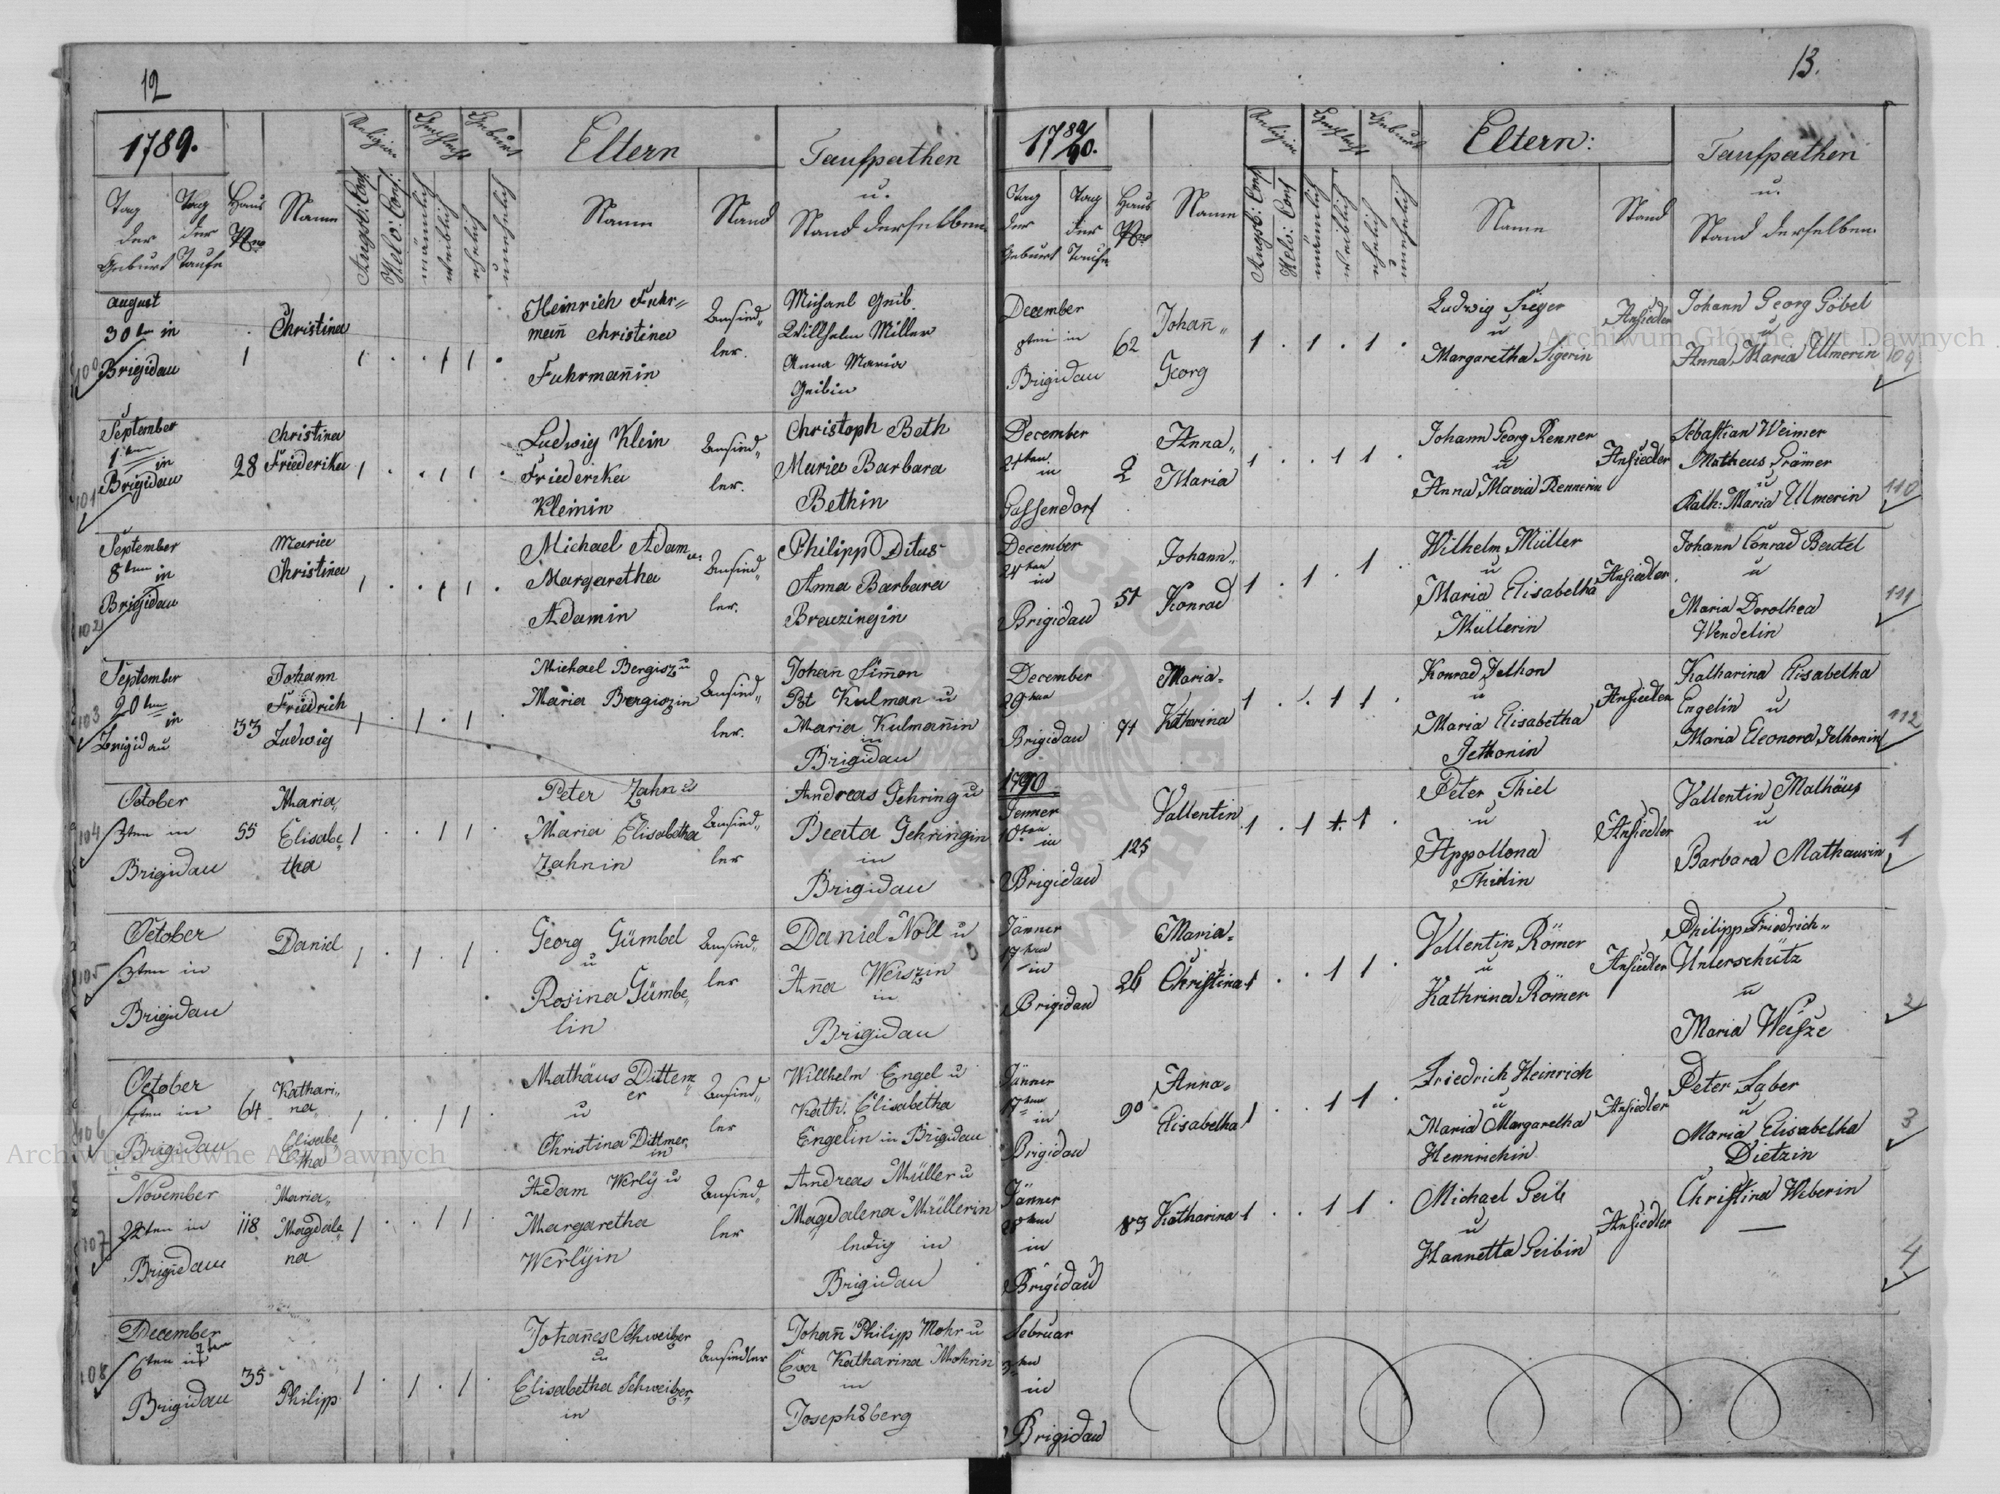 12
1789.
Religion
Geschlecht
Geburt
Eltern
Taufpathen
u.
Stand derselben.
Tag der Geburt
Tag der Taufe
Haus Nro
Name
Augsb: Conf
Helv: Conf:
männlich
weiblich
ehelich
unehelich
Name
Stand
100
August
30ten in
Brigidau
1
Christina
1 . . 1 1 .
Heinrich Fuhr=
mañ Christina
Fuhrmañin
Ansied=
ler.
Michael Geib.
Willhelm Müller
Anna Maria
Geibin
101
September
1ten in
Brigidau
28
Christina
Friederika
1 . . 1 1 .
Ludwig Klein
Friederika
Kleinin
Ansied=
ler.
Christoph Beth
Maria Barbara
Bethin
102
September
8ten in
Brigidau
Maria
Christina
1 . . 1 1 .
Michael Adam u.
Margaretha
Adamin
Ansied=
ler.
Philipp Ditus
Anna Barbara
Breuzingin
103
September
20ten in
Brigidau
33
Johann
Friedrich
Ludwig
1 . 1 . 1 .
Michael Bergisz u
Maria Bergiszin
Ansied=
ler.
Johañ Simon
Pet Kulman u
Maria Kulmañin
in
Brigidau
104
October
3ten in
Brigidau
55
Maria,
Elisabe,
tha
1 . . 1 1 .
Peter Zahn u
Maria Elisabetha
Zahnin
Ansied=
ler
Andreas Gehring u
Beata Gehringin
in
Brigidau
105
October
3ten in
Brigidau
Daniel
1 . 1 . 1 .
Georg Gümbel
u
Rosina Gümbe,
lin
Ansied=
ler
Daniel Noll u
Aña Weiszin
in
Brigidau
106
October
in
Brigidau
64
Kathari=
na
Elisabe
tha
1 . . 1 1 .
Mathäus Dittem
er
u
Christina Dittmer,
in
Ansied=
ler
Willhelm Engel u
Kath. Elisabetha
Engelin in Brigidau
107
November
22ten in
Brigidau
118.
Maria=
Magdale
na
1 . . 1 1
Adam Werly u
Margaretha
Werlÿin
Ansied=
ler
Andreas Müller u
Magdalena Müllerin
ledig in
Brigidau
108
December
6ten in 7ten
Brigidau
35
Philipp
1 . 1 . 1 .
Johañes Schweitzer
u
Elisabetha Schweitzer,
in
Ansiedler
Johañ Philipp Mohr u
Eva Katharina Mohrin
in
Josephsberg
13.
1789/90.
Religion
Geschlecht
Geburt
Eltern:
Taufpathen
u.
Stand derselben.
Tag der Geburt
Tag der Taufe
Haus Nro
Name
Augsb: Conf
Helv: Conf
männlich
weiblich
ehelich
unehelich
Name
Stand
December
8ten in
Brigidau
62
Johañ=
Georg
1 . 1 . 1 .
Ludwig Sieger
u
Margaretha Sigerin
Ansiedler
Johann Georg Göbel
u
Anna Maria Ulmerin
109
December
21ten
in
Gassendorf
2
Anna=
Maria
1 . . 1 1 .
Johann Georg Renner
u
Anna Maria Rennerin
Ansiedler
Sebastian Weimer
Matheus Krämer
u
Kath: Maria Ulmerin
110
December
24ten
in
Brigidau
51
Johann=
Konrad
1 . 1 . 1 .
Wilhelm Müller
u
Maria Elisabetha
Müllerin
Ansiedler
Johann Conrad Bertel
u
Maria Dorothea
Wendelin
111
December
29ten
Brigidau
71
Maria=
Katharina
1 . . 1 1 .
Konrad Jethon
u
Maria Elisabetha
Jethonin
Ansiedler
Katharina Elisabetha
Engelin u
Maria Eleonora Jethonin
112
1790
Jenner
10ten in
Brigidau
125
Vallentin
1 . 1 . 1 .
Peter Thiel
u
Appollona
Thielin
Ansiedler
Vallentin Mathäus
u
Barbara Mathausin
1
Jänner
17ten
in
Brigidau
26
Maria=
Christina
1 . . 1 1 .
Vallentin Römer
u
Kathrina Römer
Ansiedler
Philipp Friedrich=
Unterschütz
u
Maria Weisze
2
Jänner
17ten
in
Brigidau
90
Anna=
Elisabetha
1 . . 1 1 .
Friedrich Heinrich
u
Maria Margaretha
Hennrichin
Ansiedler
Peter Faber
u
Maria Elisabetha
Dietzin
3
Jänner
in
Brigidau
83
Katharina
1 . . 1 1 .
Michael Geib
u
Hannetta Geibin
Ansiedler
Christina Weberin
4
Februar
3ten
in
Brigidau
Archiwum Główne Akt Dawnych
Archiwum Główne Akt Dawnych